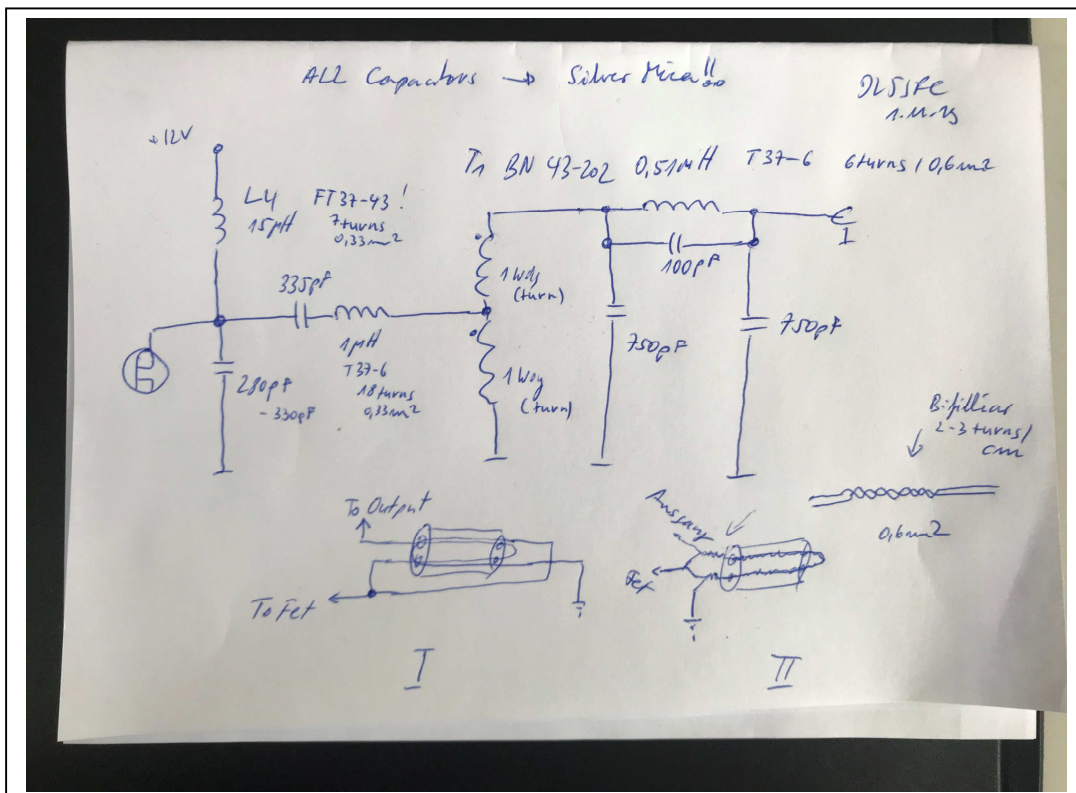 ALL Capacitors → Silver Mica!!
DL5SFC
+12V
T1 BN 43-202 0,51µH T37-6 6 turns / 0,6mm2
L4 FT37-43!
15µH 7 turns
0,33mm2
335pF
1µH
T37-6
18 turns
0,33mm2
280pF
-330pF
1 Wdg
(turn)
1 Wdg
(turn)
100pF
750pF
750pF
Bifiliar
2-3 turns/
cm
0,6mm2
To Output
To Fet
I
Ausgang
Fet
II